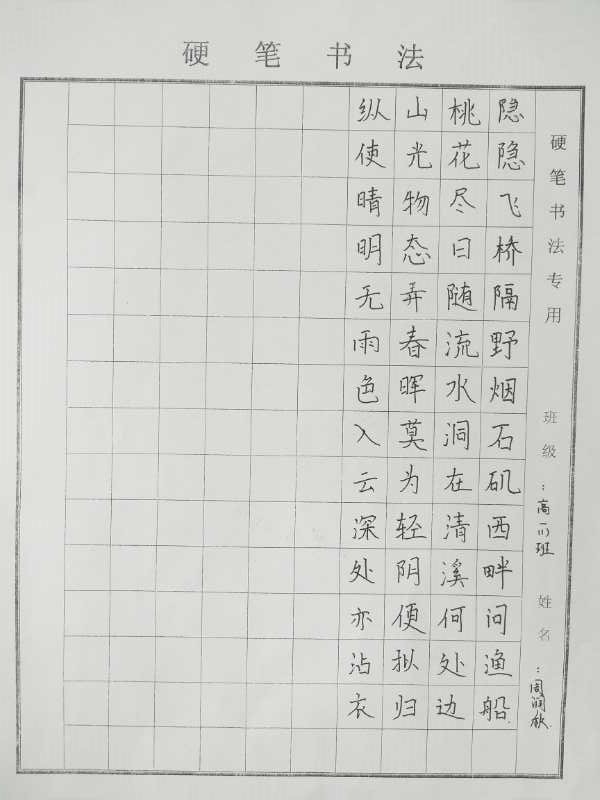 硬笔书法
硬笔书法专用 班级：高一(1)班 姓名：周润秋
隐隐飞桥隔野烟石矶西畔问渔船
桃花尽日随流水洞在清溪何处边
山光物态弄春晖莫为轻阴便拟归
纵使晴明无雨色入云深处亦沾衣